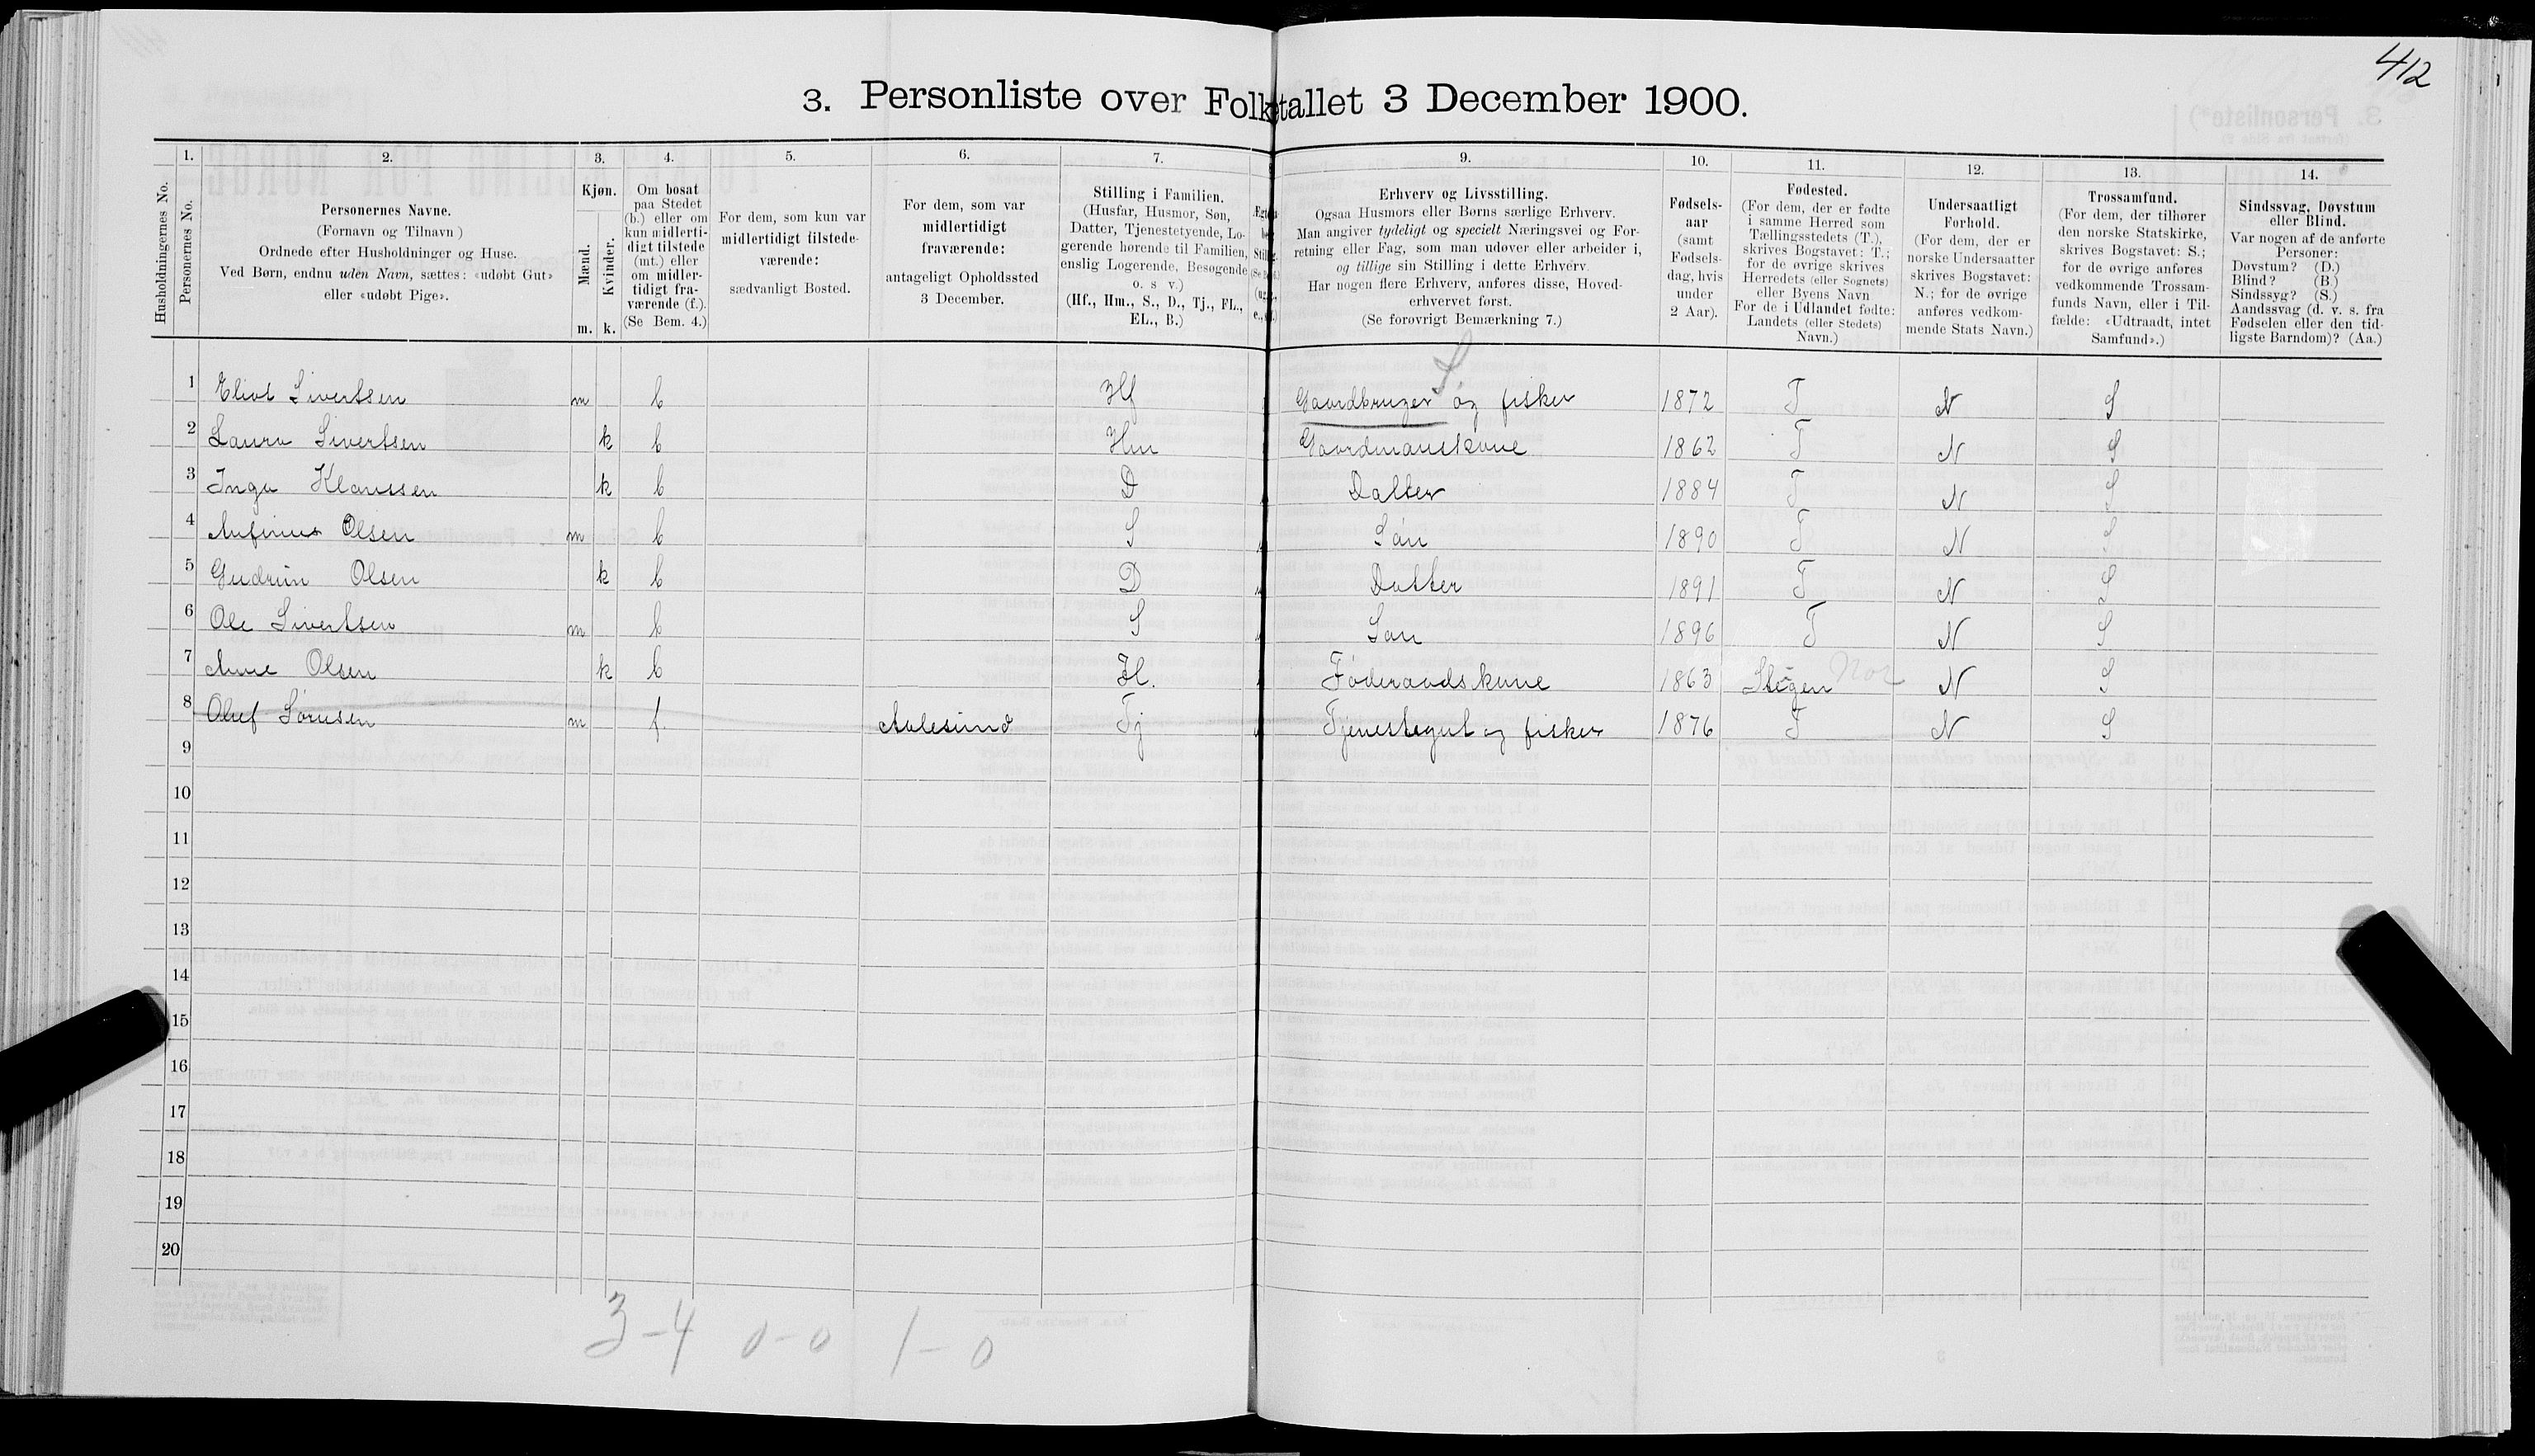 412
3. Personliste over Folketallet 3 December 1900.
1. 2. 3. 4. 5. 6. 7. 9. 10. 11. 12. 13. 14.
Husholdningernes No.
Personernes No.
Personernes Navne.
(Fornavn og Tilnavn )
Ordnede efter Husholdninger og Huse.
Ved Børn, endnu uden Navn, sættes: «udøbt Gut»
eller «udøbt Pige».
Kjøn.
Mænd.
Kvinder.
m. k.
Om bosat
paa Stedet
(b.) eller om
kun midlerti-
digt tilstede
(mt.) eller
om midler-
tidigt fra-
værende (f.).
(Se Bem. 4.)
For dem, som kun var
midlertidigt tilstede-
værende:
sædvanligt Bosted.
For dem, som var
midlertidigt
fraværende:
antageligt Opholdssted
3 December.
Stilling i Familien.
(Husfar, Husmor, Søn,
Datter, Tjenestetyende, Lo-
gerende hørende til Familien,
enslig Logerende, Besøgende
o. s v.)
(Hf., Hm., S., D., Tj., FL.,
EL., B.)
Erhverv og Livsstilling.
Ogsaa Husmors eller Børns særlige Erhverv.
Man angiver tydeligt og specielt Næringsvei og For-
retning eller Fag, som man udøver eller arbeider i,
og tillige sin Stilling i dette Erhverv.
Har nogen flere Erhverv, anføres disse, Hoved-
erhvervet først.
(Se forøvrigt Bemærkning 7.)
Fødsels-
aar
(samt
Fødsels-
dag, hvis
under
2 Aar).
Fødested.
(For dem, der er fødte
i samme Herred som
Tællingsstedets (T.),
skrives Bogstavet: T.;
for de øvrige skrives
Herredets (eller Sognets)
eller Byens Navn
For de i Udlandet fødte:
Landets (eller Stedets)
Navn.)
Undersaatligt
Forhold.
(For dem, der er
norske Undersaatter
skrives Bogstavet:
N.; for de øvrige
anføres vedkom-
mende Stats Navn.)
Trossamfund.
(For dem, der tilhører
den norske Statskirke,
skrives Bogstavet: S.;
for de øvrige anføres
vedkommende Trossam-
funds Navn, eller i Til-
fælde: «Udtraadt, intet
Samfund».)
Sindssvag, Døvstum
eller Blind.
Var nogen af de anførte
Personer:
Døvstum? (D.)
Blind? (B.)
Sindssyg? (S.)
Aandssvag (d. v. s. fra
Fødselen eller den tid-
ligste Barndom)? (Aa.)
1 Eliot Sivertsen m b Hf Gaardbruger og fisker 1872 T N S
2 Laura Sivertsen k b Hm Gaardmanskone 1862 T N S
3 Inga Klaussen k b D Datter 1884 T N S
4 Anfinus Olsen m b S Søn 1890 T N S
5 Gudrun Olsen k b D Datter 1891 T N S
6 Ole Sivertsen m b S Søn 1896 T N S
7 Anne Olsen k b H. Føderaadskone 1863 Stegen Nor N S
8 Oluf Sørnsen m f Aalesund Tj Tjenestegut og fisker 1876 T N S
9
10
11
12
13
14
15
16
17
18
19
20
3-4 0-0 1-0